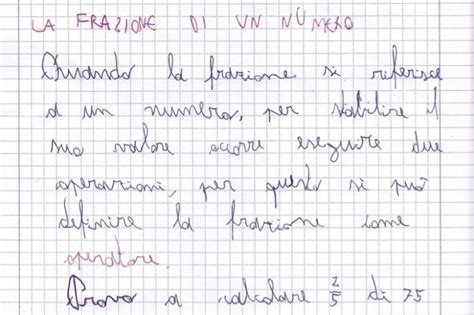 LA FRAZIONE DI UN NUMERO
Quando la frazione si riferisce
a un numero, per stabilire il
suo valore occorre eseguire due
operazioni, per questo si può
definire la frazione come
operatore.
Prova a calcolare 2/5 di 75